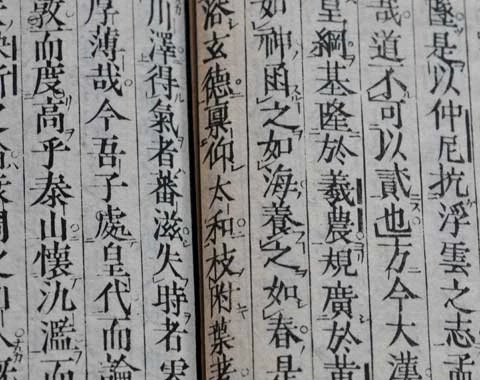 是以仲尼抗浮雲之志孟
哉道不可以貳也方今大漢
皇綱基隆於羲農規廣於黃
如神函之如海養之如春是
浴玄德稟仰太和枝附葉著
川澤得氣者蕃滋失時者零
厚薄哉今吾子處皇代而論
敦而度高乎泰山懷氿濫而